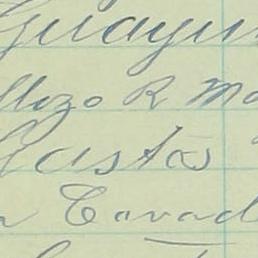 Guayu
llozo R Ma
Castas
n Cavad